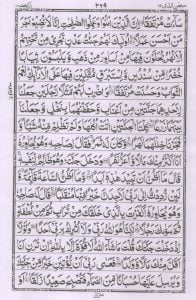 سبحٰن الذی ١٥
٢٦٩
سَآءَتْ مُرْتَفَقًا اِنَّ الَّذِیْنَ اٰمَنُوْا وَعَمِلُوا الصّٰلِحٰتِ اِنَّا لَا نُضِیْعُ اَجْرَ
مَنْ اَحْسَنَ عَمَلًا اُولٰٓئِكَ لَهُمْ جَنّٰتُ عَدْنٍ تَجْرِیْ مِنْ تَحْتِهِمُ
الْاَنْهٰرُ یُحَلَّوْنَ فِیْهَا مِنْ اَسَاوِرَ مِنْ ذَهَبٍ وَّیَلْبَسُوْنَ ثِیَابًا
خُضْرًا مِّنْ سُنْدُسٍ وَّاِسْتَبْرَقٍ مُّتَّكِـِٕیْنَ فِیْهَا عَلَى الْاَرَآئِكِ نِعْمَ
الثَّوَابُ وَحَسُنَتْ مُرْتَفَقًا وَاضْرِبْ لَهُمْ مَّثَلًا رَّجُلَیْنِ جَعَلْنَا
لِاَحَدِهِمَا جَنَّتَیْنِ مِنْ اَعْنَابٍ وَّحَفَفْنٰهُمَا بِنَخْلٍ وَّجَعَلْنَا
بَیْنَهُمَا زَرْعًا كِلْتَا الْجَنَّتَیْنِ اٰتَتْ اُكُلَهَا وَلَمْ تَظْلِمْ مِّنْهُ شَیْـًٔا
وَّفَجَّرْنَا خِلٰلَهُمَا نَهَرًا وَّكَانَ لَهٗ ثَمَرٌ فَقَالَ لِصَاحِبِهٖ وَهُوَ یُحَاوِرُهٗٓ
اَنَا اَكْثَرُ مِنْكَ مَالًا وَّاَعَزُّ نَفَرًا وَدَخَلَ جَنَّتَهٗ وَهُوَ ظَالِمٌ لِّنَفْسِهٖ قَالَ
مَآ اَظُنُّ اَنْ تَبِیْدَ هٰذِهٖٓ اَبَدًا وَّمَآ اَظُنُّ السَّاعَةَ قَآئِمَةً وَّ
لَئِنْ رُّدِدْتُّ اِلٰى رَبِّیْ لَاَجِدَنَّ خَیْرًا مِّنْهَا مُنْقَلَبًا قَالَ لَهٗ صَاحِبُهٗ
وَهُوَ یُحَاوِرُهٗٓ اَكَفَرْتَ بِالَّذِیْ خَلَقَكَ مِنْ تُرَابٍ ثُمَّ مِنْ نُّطْفَةٍ
ثُمَّ سَوّٰىكَ رَجُلًا لٰكِنَّا هُوَ اللّٰهُ رَبِّیْ وَلَآ اُشْرِكُ بِرَبِّیْٓ اَحَدًا وَلَوْلَآ
اِذْ دَخَلْتَ جَنَّتَكَ قُلْتَ مَا شَآءَ اللّٰهُ لَا قُوَّةَ اِلَّا بِاللّٰهِ اِنْ تَرَنِ اَنَا
اَقَلَّ مِنْكَ مَالًا وَّوَلَدًا فَعَسٰى رَبِّیْٓ اَنْ یُّؤْتِیَنِ خَیْرًا مِّنْ جَنَّتِكَ
وَیُرْسِلَ عَلَیْهَا حُسْبَانًا مِّنَ السَّمَآءِ فَتُصْبِحَ صَعِیْدًا زَلَقًا اَوْ